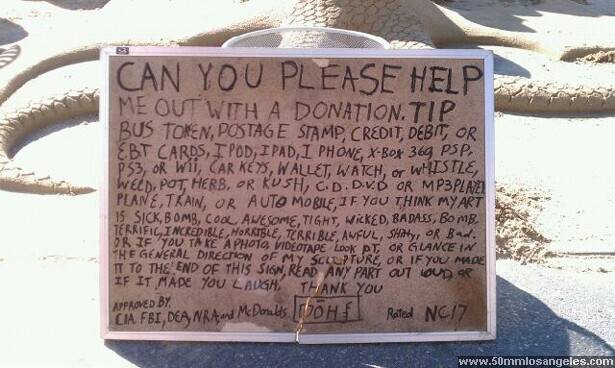 CAN YOU PLEASE HELP
ME OUT WITH A DONATION. TIP
BUS TOKEN, POSTAGE STAMP, CREDIT, DEBIT, OR
EBT CARDS, I POD, I PAD, I PHONE, X-BOX 360, PSP,
PS3, OR WII, CAR KEYS, WALLET, WATCH, or WHISTLE,
WEED, POT, HERB, OR KUSH, C.D. D.V.D OR MP3 PLAYER
PLANE, TRAIN, OR AUTO MOBILE, IF YOU THINK MY ART
IS SICK, BOMB, COOL, AWESOME, TIGHT, WICKED, BADASS, BOMB,
TERRIFIC, INCREDIBLE, HORRIBLE, TERRIBLE, AWFUL, SHitty, OR Bad.
OR IF YOU TAKE A PHOTO, VIDEOTAPE LOOK AT, OR GLANCE IN
THE GENERAL DIRECTION OF MY SCULPTURE, OR IF YOU MADE
IT TO THE END OF THIS SIGN, READ ANY PART OUT LOUD, OR
IF IT MADE YOU LAUGH, THANK YOU
APPROVED BY:
CIA, FBI, DEA, NRA, and McDonalds Rated NC17
www.50mmlosangeles.com